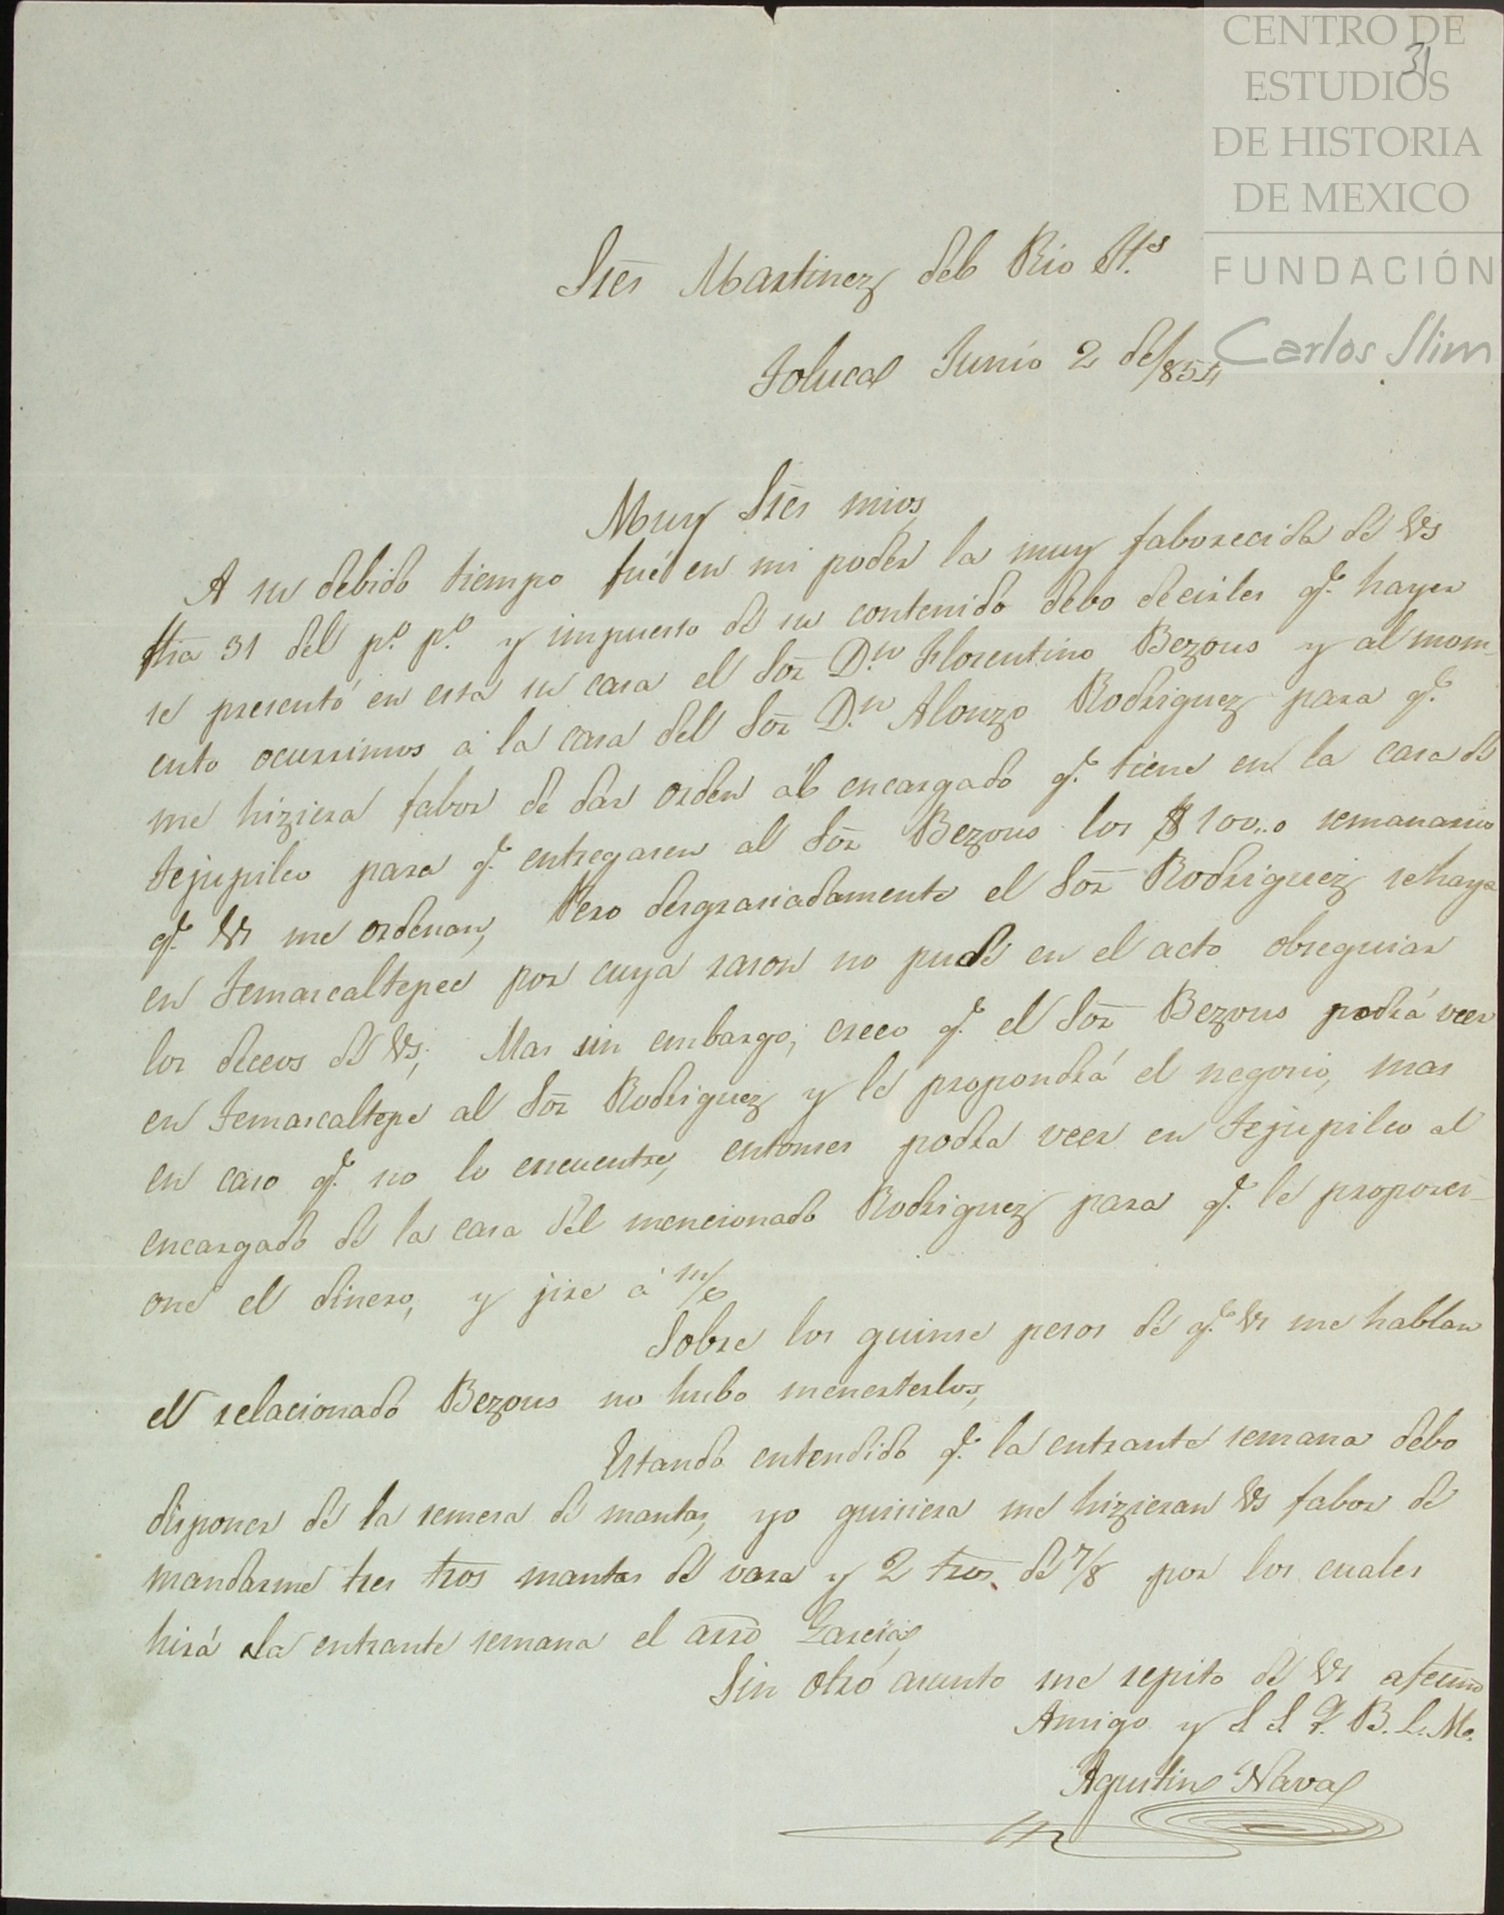 CENTRO DE
ESTUDIOS
DE HISTORIA
DE MEXICO
FUNDACIÓN
Carlos Slim
31
Sres Martinez del Rio H.s
Toluca Junio 2 de/854
Muy Sres mios
A su debido tiempo fué en mi poder la muy faborecida de Vs
fha 31 del p.o p.o y impuesto de su contenido debo decirles q.e hayer
se presentó en esta su casa el Sor D.n Florentino Bezous y al mom-
ento ocurrimos á la casa del Sor D.n Alonzo Rodriguez para q.e
me hiziera fabor de dar orden al encargado q.e tiene en la casa de
Tejupilco para q.e entregaren al Sor Bezous los $100..0 semanarios
q.e Vs me ordenan, Pero desgrasiadamente el Sor Rodriguez se haya
en Temascaltepec por cuya rason no pude en el acto obsequiar
los deceos de Vs; Mas sin embargo, creeo q.e el Sor Bezous podrá veer
en Temascaltepe al Sor Rodriguez y le propondrá el negosio, mas
en caso q.e no lo encuentre, entonses podra veer en Tejupilco al
encargado de la casa del mencionado Rodriguez para q.e le proporci-
one el dinero, y jire á m/c
Sobre los quinse pesos de q.e Vs me hablan
el relacionado Bezous no hubo menesterlos,
Estando entendido q.e la entrante semana debo
disponer de la remesa de mantas, yo quisiera me hizieran Vs fabor de
mandarme tres tros mantas de vara y 2 tros. de 7/8 por los cuales
hirá la entrante semana el arro Garcia,
Sin otro asunto me repito de Vs afecmo
Amigo y S. S. Q. B. L. M.
Agustin Nava